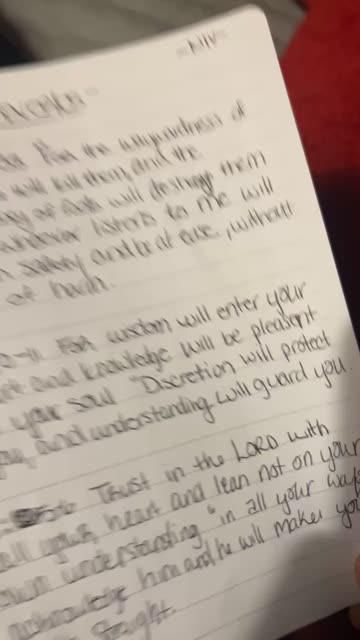 -NIV-
For the waywardness of
will kill them, and the
of fools will destroy them
whoever listens to me will
safety and be at ease, without
of harm.
0-11 For wisdom will enter your
and knowledge will be pleasant
your soul "Discretion will protect
you, and understanding will guard you.
Trust in the LORD with
all your heart and lean not on your
own understanding, in all your ways
acknowledge him and he will make your
straight.